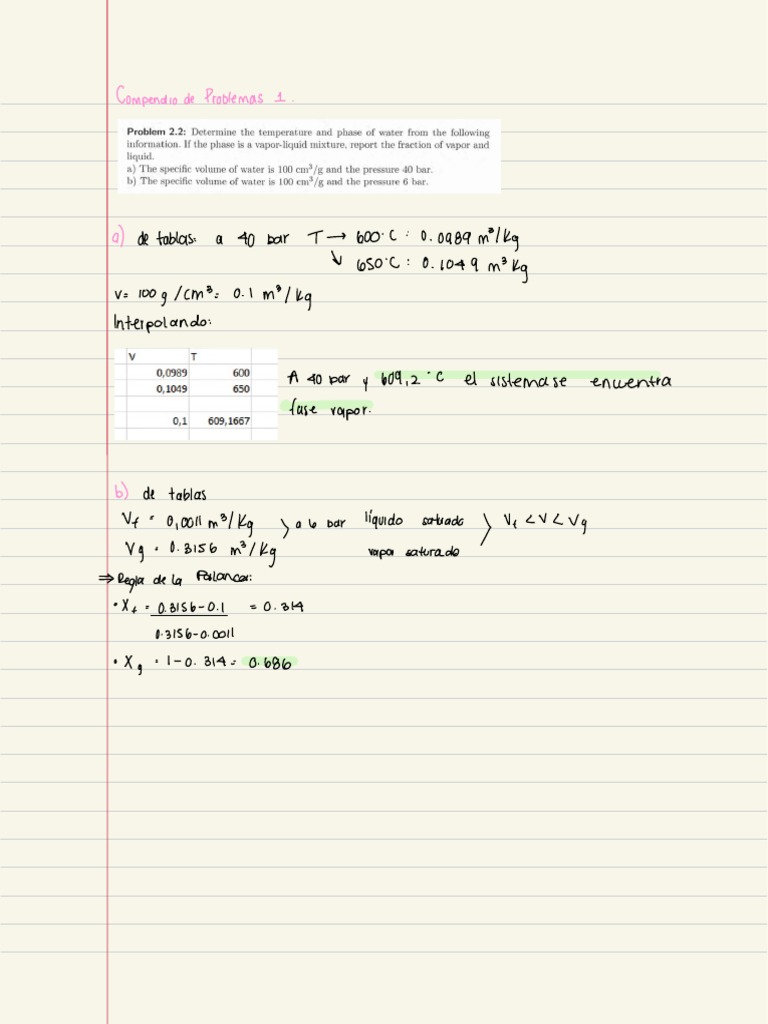 Compendio de Problemas 1.
Problem 2.2: Determine the temperature and phase of water from the following
information. If the phase is a vapor-liquid mixture, report the fraction of vapor and
liquid.
a) The specific volume of water is 100 cm³/g and the pressure 40 bar.
b) The specific volume of water is 100 cm³/g and the pressure 6 bar.
a) de tablas: a 40 bar T → 600°C : 0.0989 m³/kg
↳ 650°C : 0.1049 m³kg
V= 100 g/cm³: 0.1 m³/kg
Interpolando:
V T
0,0989 600
0,1049 650
0,1 609,1667
A 40 bar y 609,2 °C el sistema se encuentra
fase vapor.
b) de tablas
Vf = 0,0011 m³/kg > a 6 bar líquido saturado > Vf < V < Vg
Vg = 0.3156 m³/kg vapor saturado
⇒ Regla de la Palanca:
• Xf = 0.3156-0.1 = 0.314
0.3156-0.0011
• Xg = 1-0.314= 0.686